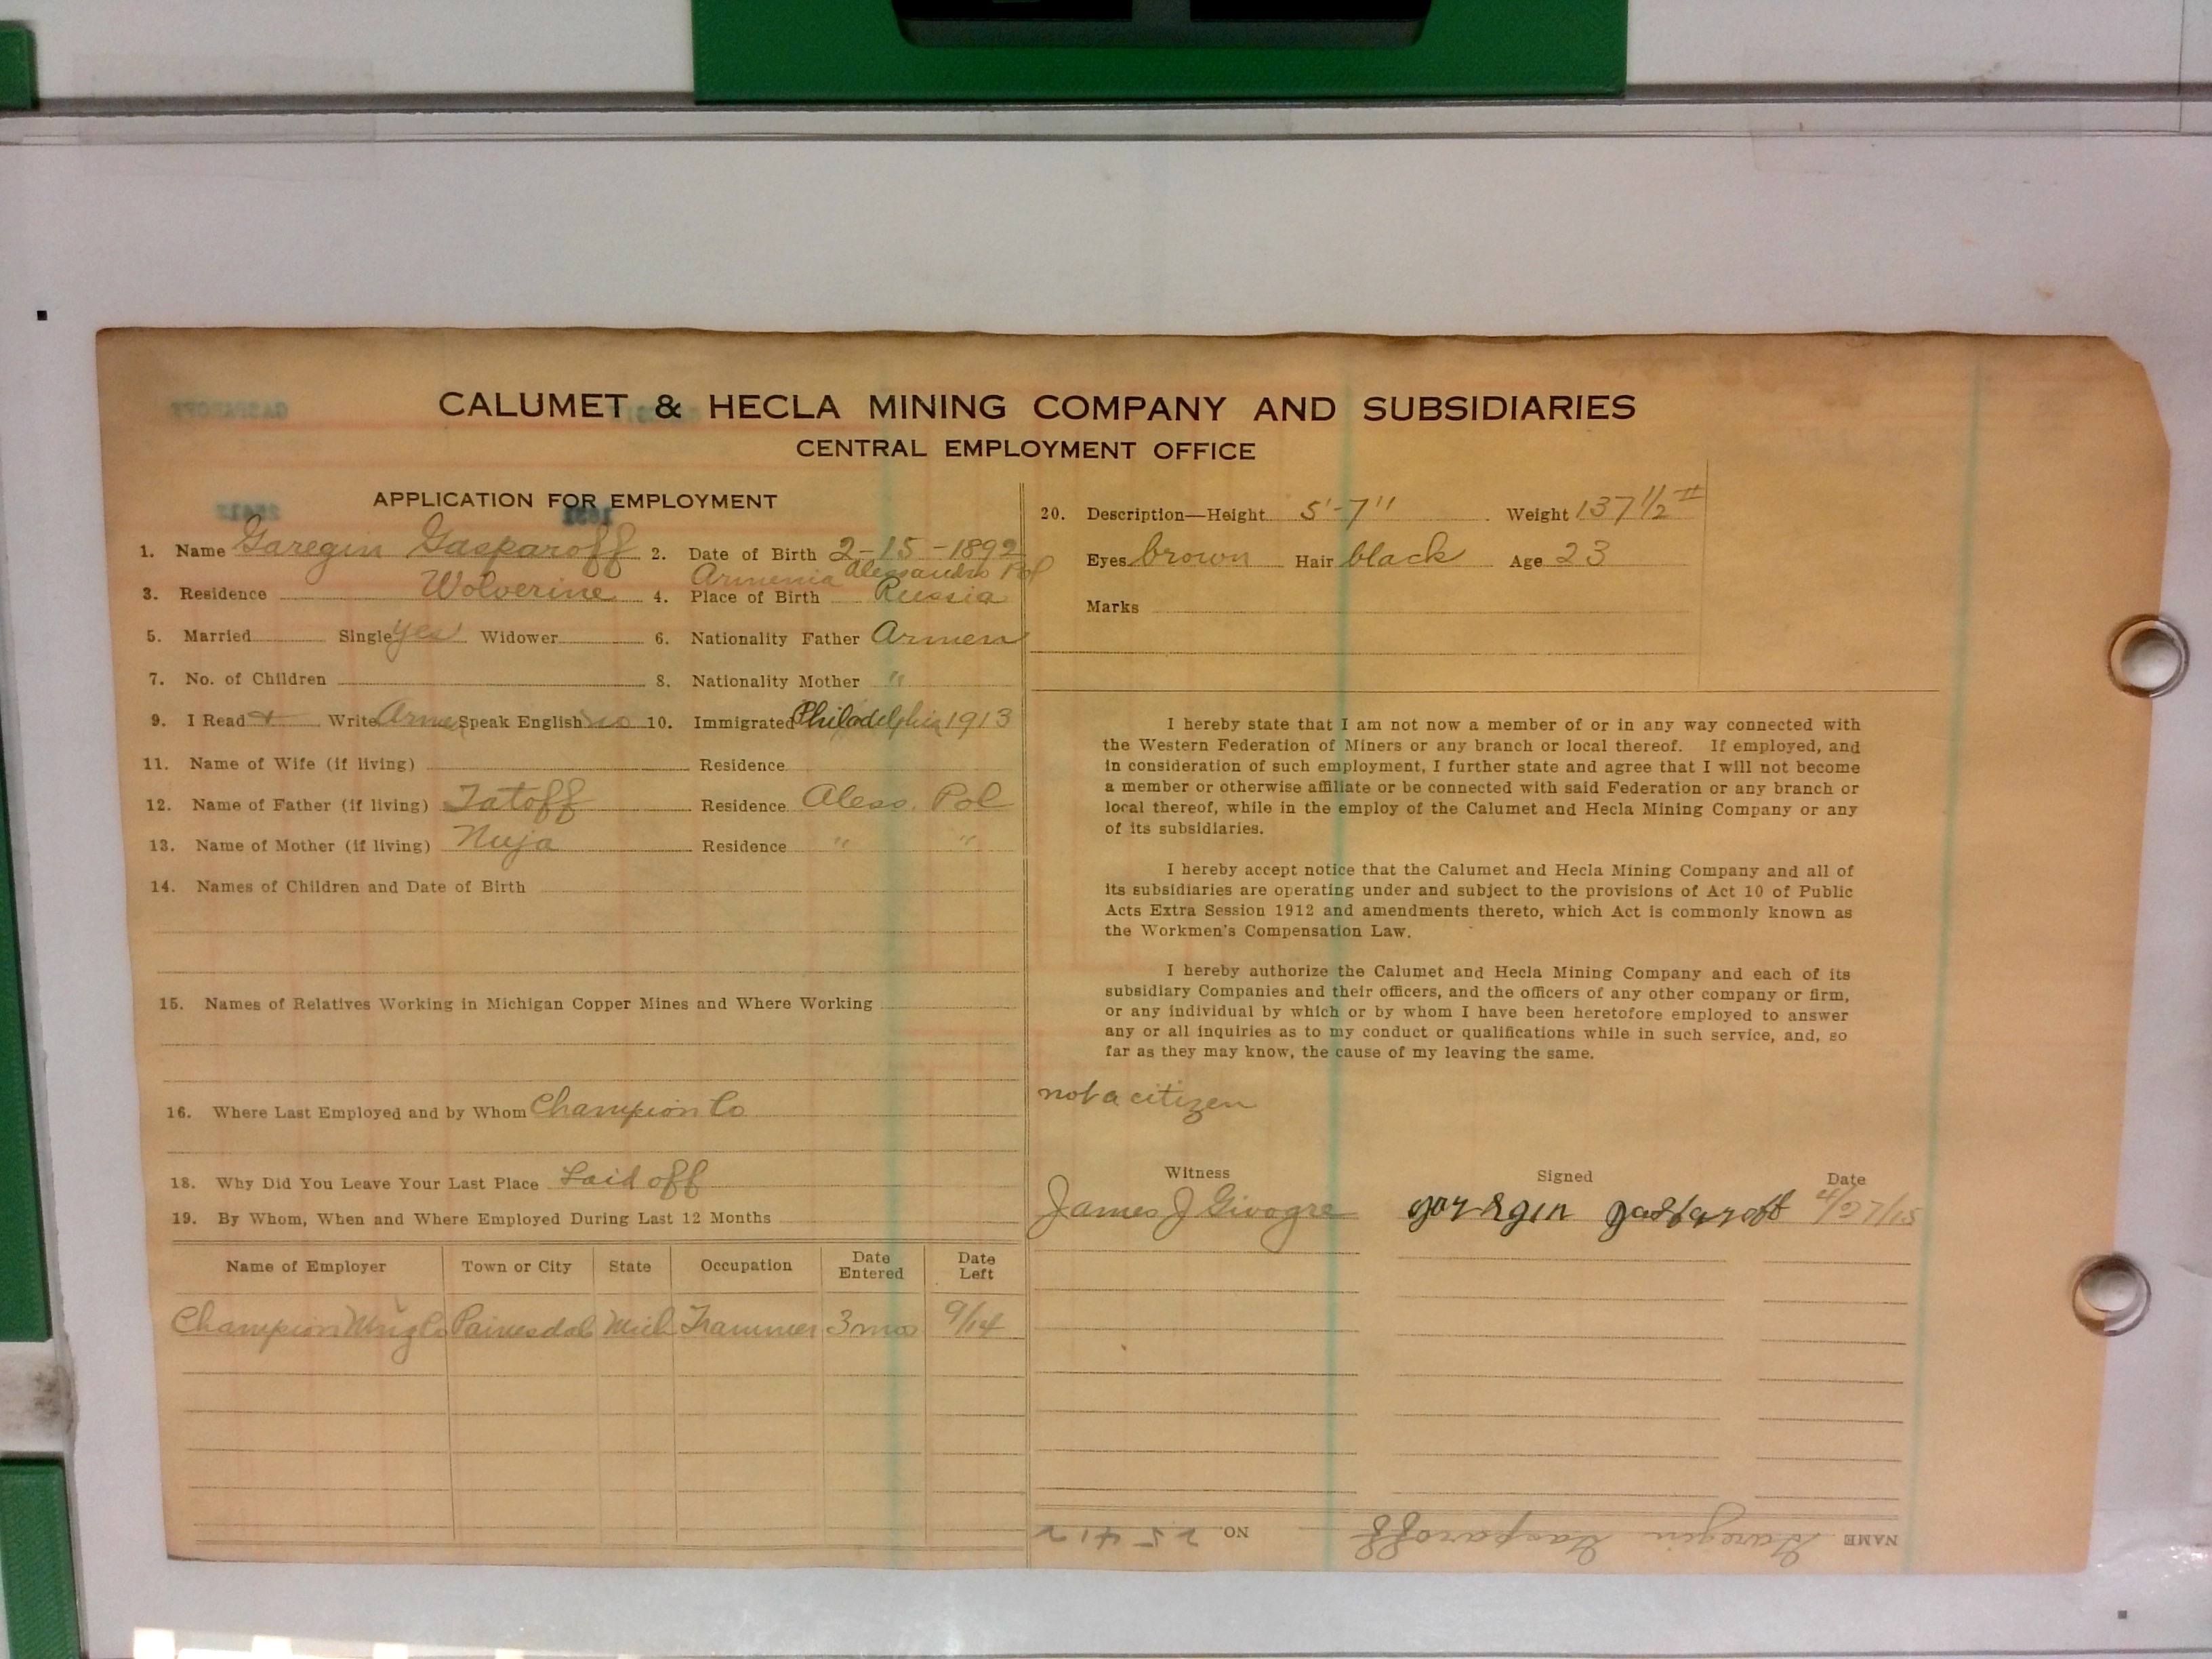 CALUMET & HECLA MINING COMPANY AND SUBSIDIARIES
CENTRAL EMPLOYMENT OFFICE
APPLICATION FOR EMPLOYMENT
1. Name Garegin Gasparoff 2. Date of Birth 2-15-1892
Armenia Alessandro Pol
3. Residence Wolverine 4. Place of Birth Russia
5. Married Single yes Widower 6. Nationality Father Armen
7. No. of Children 8. Nationality Mother "
9. I Read + Write Arme Speak English no 10. Immigrated Philadelphia 1913
11. Name of Wife (if living) Residence
12. Name of Father (if living) Tatoff Residence Aless. Pol
13. Name of Mother (if living) Nuja Residence " "
14. Names of Children and Date of Birth
15. Names of Relatives Working in Michigan Copper Mines and Where Working
16. Where Last Employed and by Whom Champion Co
18. Why Did You Leave Your Last Place Laid off
19. By Whom, When and Where Employed During Last 12 Months
Name of Employer Town or City State Occupation Date Entered Date Left
Champion Mng Co Painesdal Mich Trammer 3 mos 9/14
20. Description—Height 5'-7" Weight 137 1/2 #
Eyes brown Hair black Age 23
Marks
I hereby state that I am not now a member of or in any way connected with
the Western Federation of Miners or any branch or local thereof. If employed, and
in consideration of such employment, I further state and agree that I will not become
a member or otherwise affiliate or be connected with said Federation or any branch or
local thereof, while in the employ of the Calumet and Hecla Mining Company or any
of its subsidiaries.
I hereby accept notice that the Calumet and Hecla Mining Company and all of
its subsidiaries are operating under and subject to the provisions of Act 10 of Public
Acts Extra Session 1912 and amendments thereto, which Act is commonly known as
the Workmen's Compensation Law.
I hereby authorize the Calumet and Hecla Mining Company and each of its
subsidiary Companies and their officers, and the officers of any other company or firm,
or any individual by which or by whom I have been heretofore employed to answer
any or all inquiries as to my conduct or qualifications while in such service, and, so
far as they may know, the cause of my leaving the same.
not a citizen
Witness Signed Date
James J Givogre garegin gasparoff 4/27/15
NAME Garegin Gasparoff NO. 25412